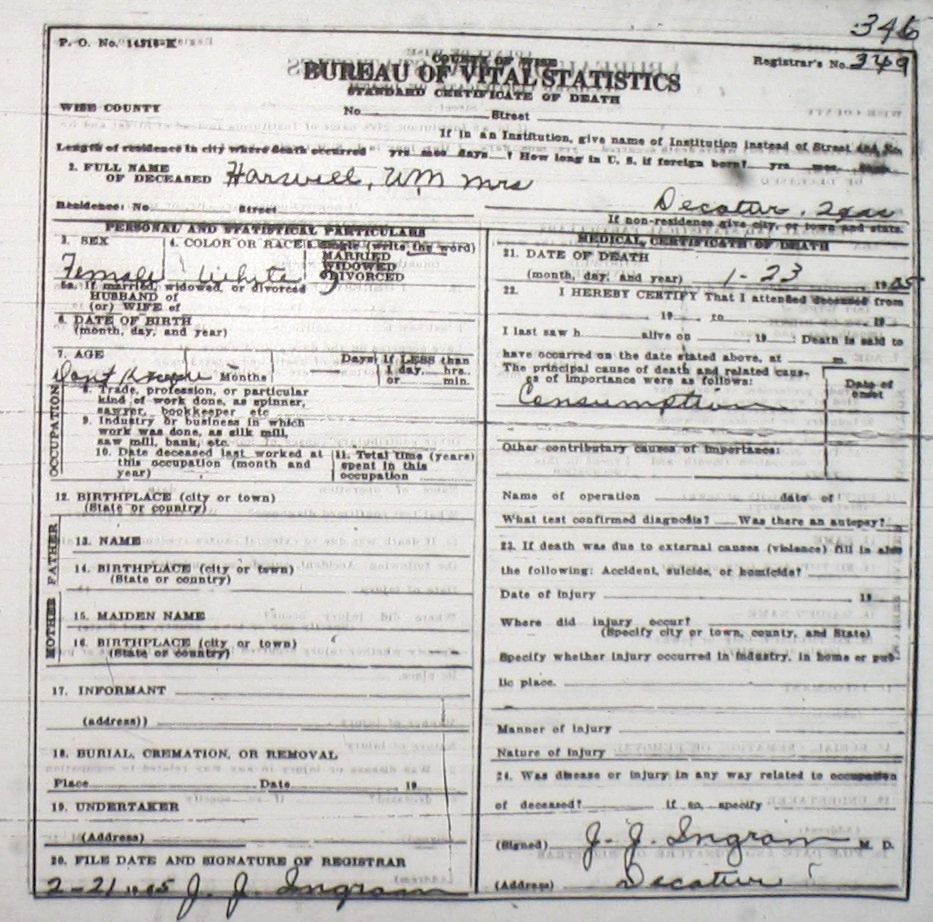 346
P. O. No. 14318-K
COUNTY OF WISE
Registrar's No. 349
BUREAU OF VITAL STATISTICS
STANDARD CERTIFICATE OF DEATH
WISE COUNTY
No. Street
If in an Institution, give name of Institution instead of Street and No.
Length of residence in city where death occurred yrs mos days ? How long in U. S. if foreign born? yrs mos days
2. FULL NAME
OF DECEASED Harwell, WM Mrs
Residence: No. Street Decatur, Texas
If non-residence give city, or town and state.
PERSONAL AND STATISTICAL PARTICULARS
3. SEX 4. COLOR OR RACE 5. Single (write the word)
MARRIED
WIDOWED
DIVORCED
Female White
5a. If married, widowed, or divorced
HUSBAND of
(or) WIFE of
6. DATE OF BIRTH
(month, day, and year)
7. AGE Days If LESS than
1 day, hrs.
Dont Know Months or min.
OCCUPATION
8. Trade, profession, or particular
kind of work done, as spinner,
sawyer, bookkeeper etc
9. Industry or business in which
work was done, as silk mill,
saw mill, bank, etc.
10. Date deceased last worked at
this occupation (month and
year)
11. Total time (years)
spent in this
occupation
12. BIRTHPLACE (city or town)
(State or country)
FATHER
13. NAME
14. BIRTHPLACE (city or town)
(State or country)
MOTHER
15. MAIDEN NAME
16. BIRTHPLACE (city or town)
(State or country)
17. INFORMANT
(address))
18. BURIAL, CREMATION, OR REMOVAL
Place Date 19
19. UNDERTAKER
(Address)
20. FILE DATE AND SIGNATURE OF REGISTRAR
2-21 1905 J. J. Ingram
MEDICAL CERTIFICATE OF DEATH
21. DATE OF DEATH
(month, day, and year) 1-23 1905
22. I HEREBY CERTIFY That I attended deceased from
19 , to 19
I last saw h alive on , 19 ; Death is said to
have occurred on the date stated above, at m.
The principal cause of death and related caus-
es of importance were as follows:
Date of
onset
Consumption
Other contributary causes of importance:
Name of operation date of
What test confirmed diagnosis? Was there an autopsy?
23. If death was due to external causes (violence) fill in also
the following: Accident, suicide, or homicide?
Date of injury 19
Where did injury occur?
(Specify city or town, county, and State)
Specify whether injury occurred in industry, in home or pub-
lic place.
Manner of injury
Nature of injury
24. Was disease or injury in any way related to occupation
of deceased? if so, specify
(Signed) J. J. Ingram M. D.
(Address) Decatur